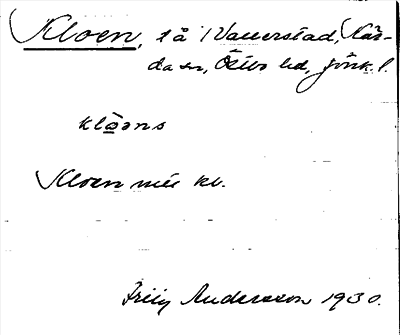 Kloen, t å i Vallerstad, Kär-
da sn, Östbo hd, Jönk. l.
klɷɷns
Kloen nær kv.
Frity Andersson 1930.